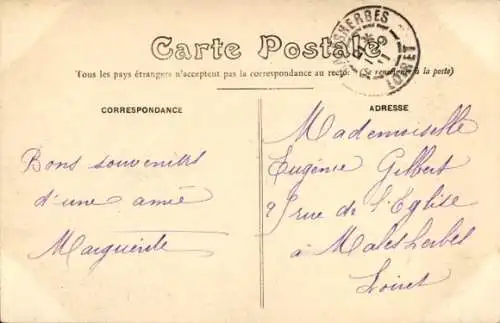 Carte Postale
Tous les pays étrangers n'acceptent pas la correspondance au recto. (Se renseigner à la poste)
MALESHERBES
LOIRET
CORRESPONDANCE
Bons souvenirs
d'une amie
Marguerite
ADRESSE
Mademoiselle
Eugénie Gilbert
rue de l'Eglise
à Malesherbes
Loiret